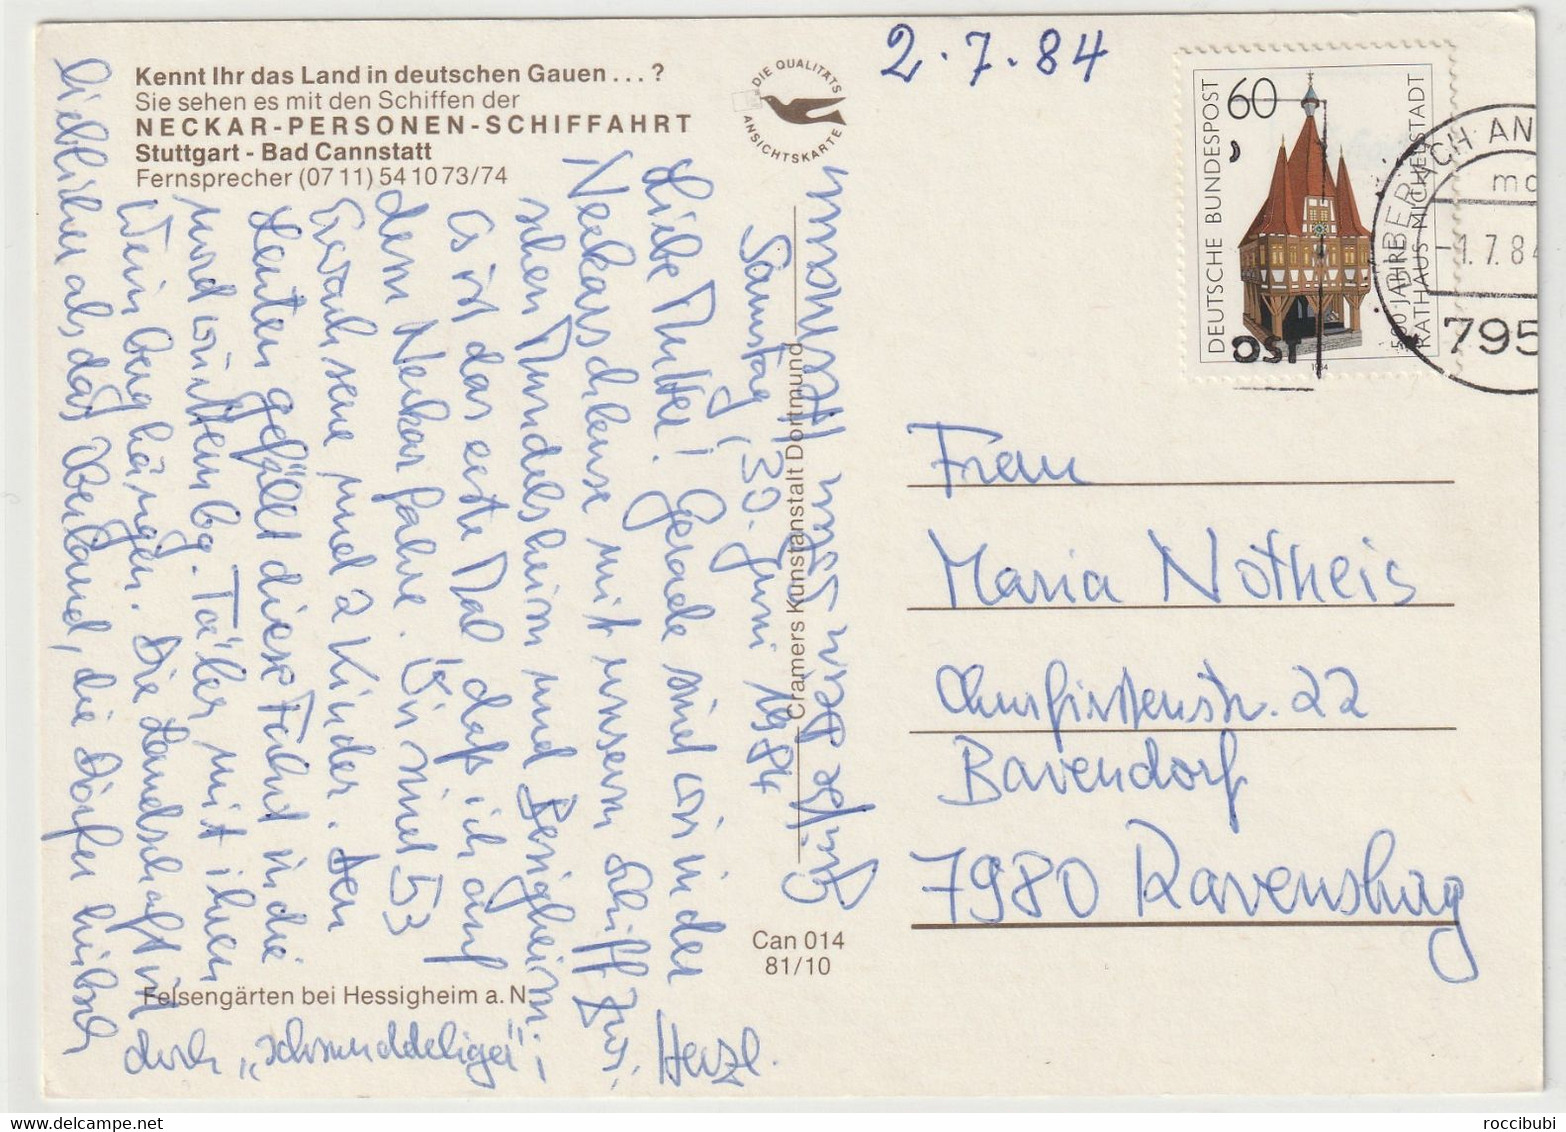 Kennt Ihr das Land in deutschen Gauen . . . ?
Sie sehen es mit den Schiffen der
NECKAR-PERSONEN-SCHIFFAHRT
Stuttgart - Bad Cannstatt
Fernsprecher (07 11) 54 10 73/74
DIE QUALITÄTS
ANSICHTSKARTE
2.7.84
60
DEUTSCHE BUNDESPOST
500 JAHRE
RATHAUS MICHELSTADT
1984
CH AN
1.7.84
795
OST
Samstag, 30. Juni 1984
Liebe Mutter! Gerade sind wir in der
Neckarschleuse mit unserm Schiff zwi-
schen Mundelsheim und Besigheim.
Es ist das erste Mal, daß ich auf
dem Neckar fahre. Wir sind 53
Erwachsene und 2 Kinder. Den
Leuten gefällt diese Fahrt in die
und württembg. Täler mit ihren
Weinberghängen. Die Landschaft ist
lieblicher als das Oberland, die Dörfer hübsch
doch „schmuddeliger";
Herzl.
Grüße Dein Hermann
Cramers Kunstanstalt Dortmund
Can 014
81/10
Felsengärten bei Hessigheim a. N.
Frau
Maria Notheis
Churfirstenstr. 22
Bavendorf
7980 Ravensbug
roccibubi